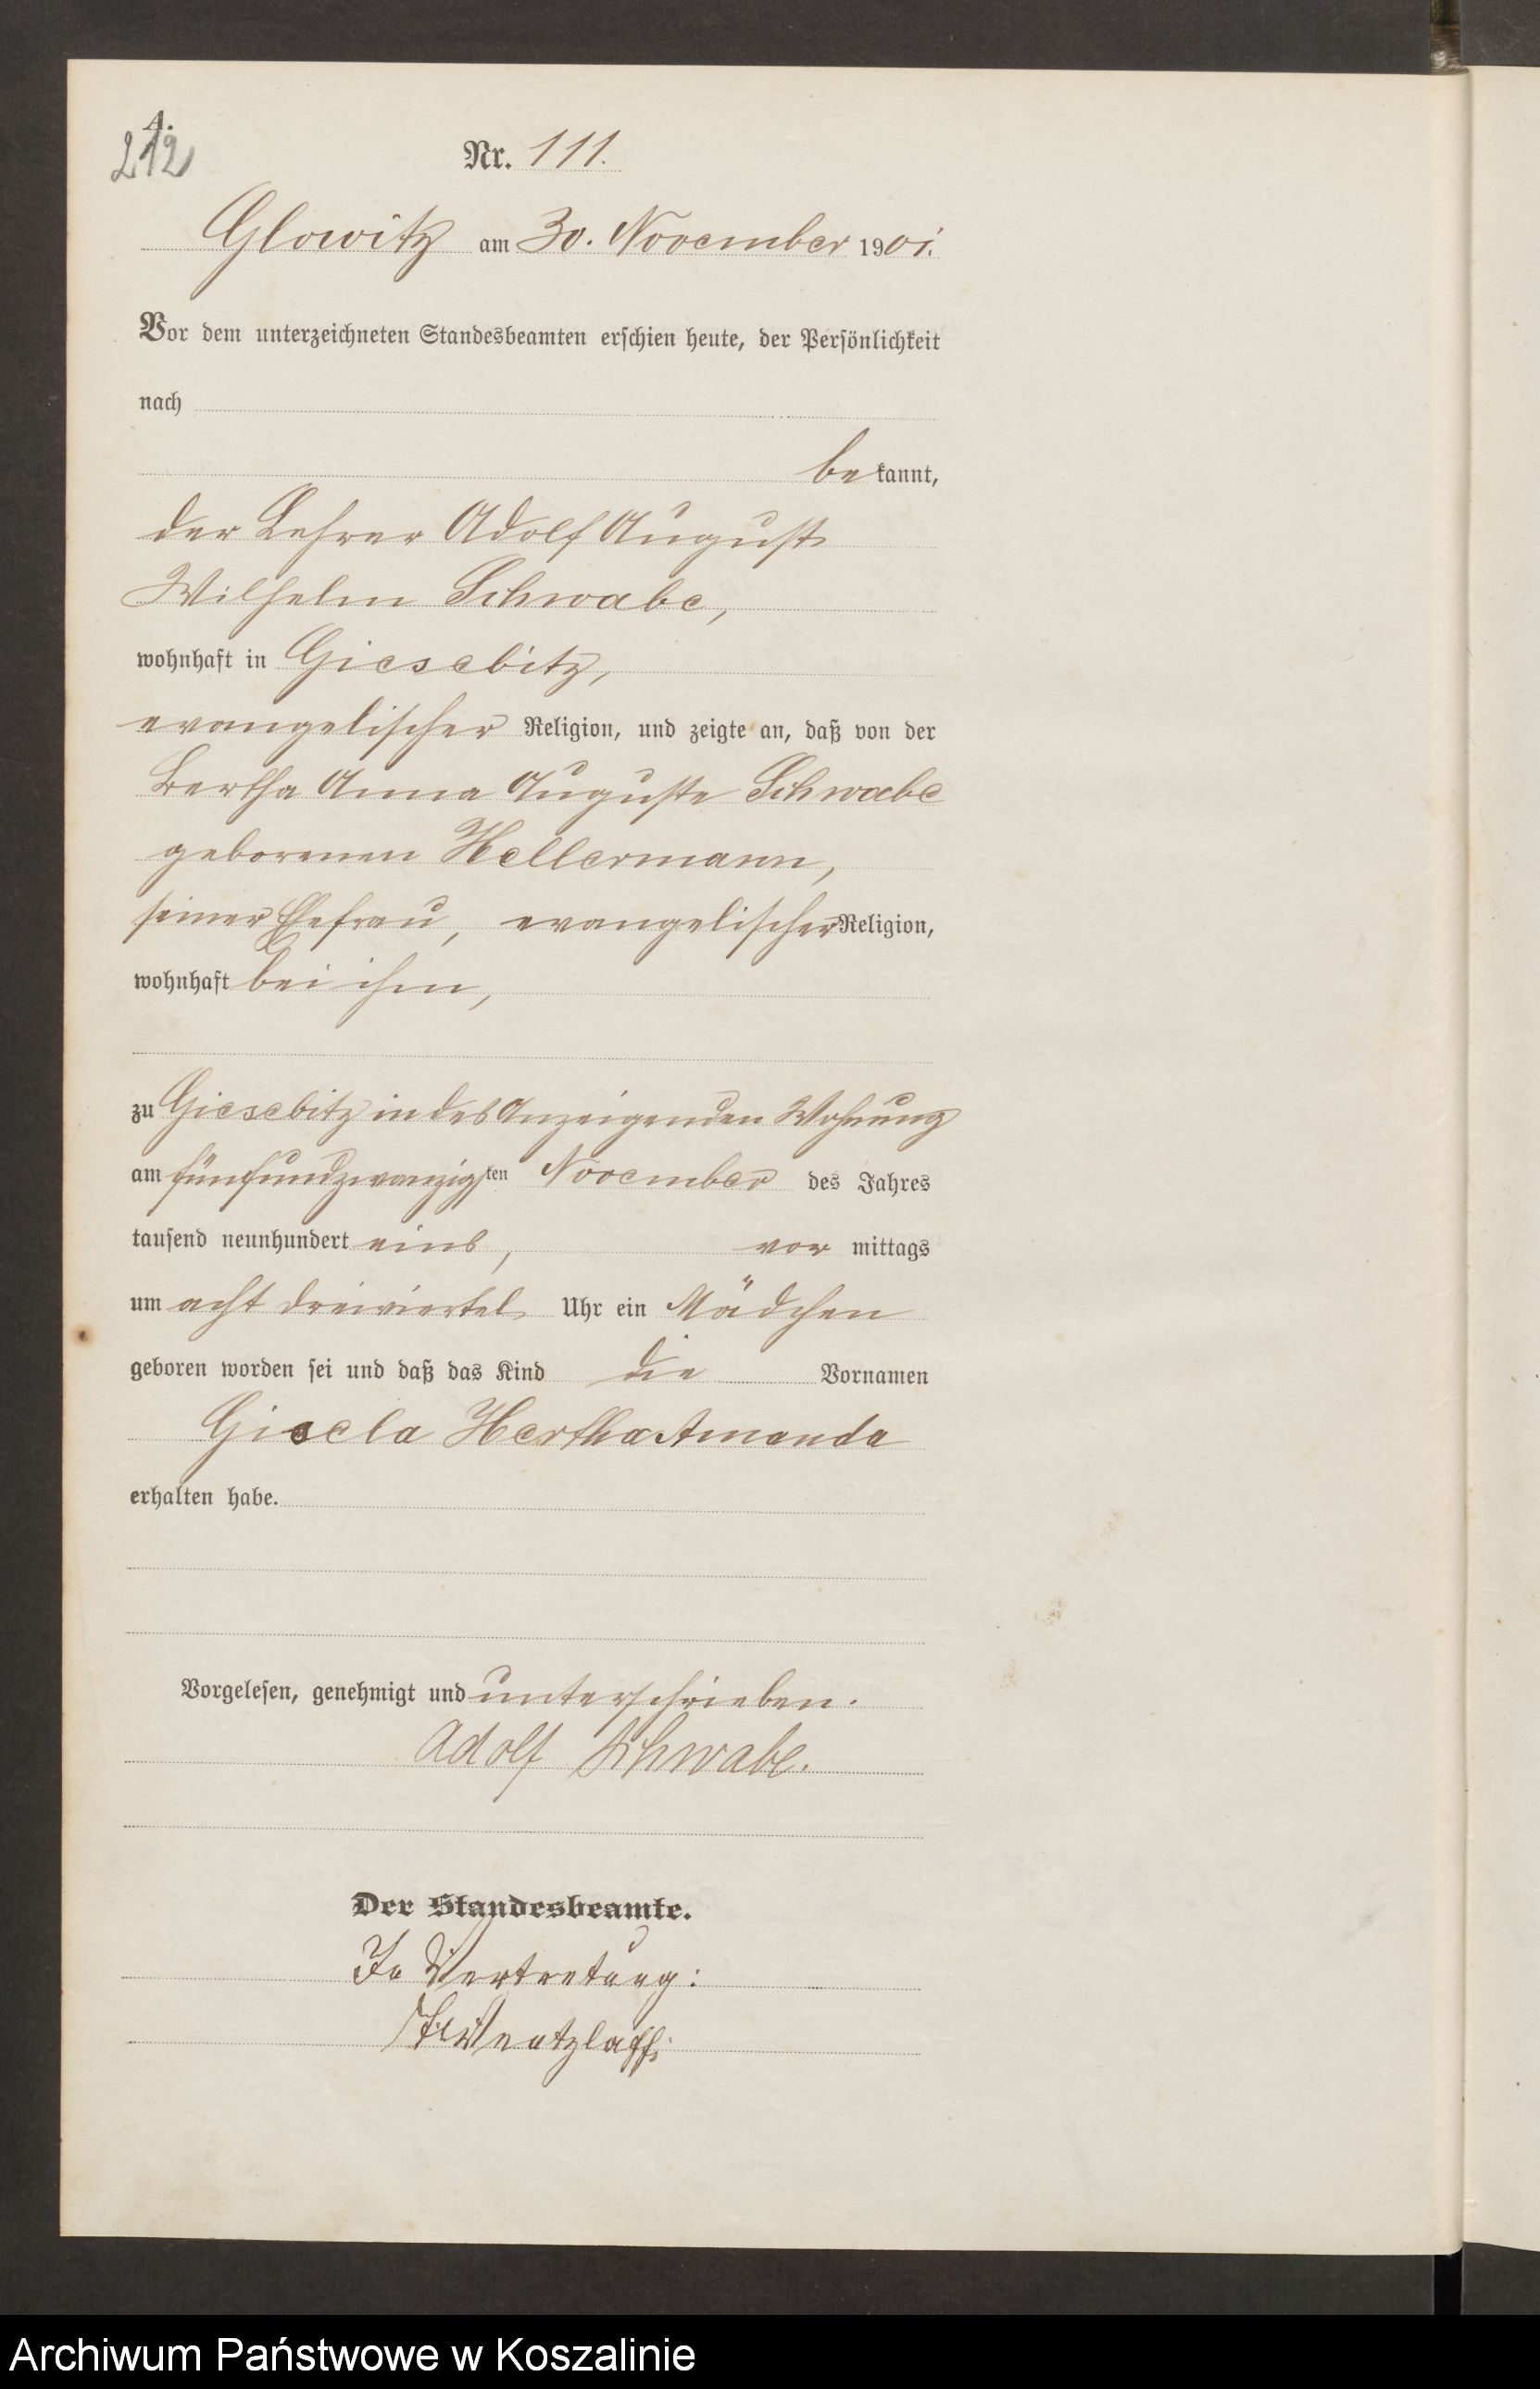 A.
212
Nr. 111.
Glowitz am 30. November 1901.
Vor dem unterzeichneten Standesbeamten erschien heute, der Persönlichkeit
nach
bekannt,
der Lehrer Adolf August
Wilhelm Schwabe,
wohnhaft in Giesebitz,
evangelischer Religion, und zeigte an, daß von der
Bertha Anna Auguste Schwabe
geborenen Hellermann,
seiner Ehefrau, evangelischer Religion,
wohnhaft bei ihm,
zu Giesebitz in des Anzeigenden Wohnung
am fünfundzwanzigsten November des Jahres
tausend neunhundert eins, vor mittags
um acht dreiviertel Uhr ein Mädchen
geboren worden sei und daß das Kind die Vornamen
Gisela Hertha Amanda
erhalten habe.
Vorgelesen, genehmigt und unterschrieben.
Adolf Schwabe.
Der Standesbeamte.
In Vertretung:
Archiwum Państwowe w Koszalinie